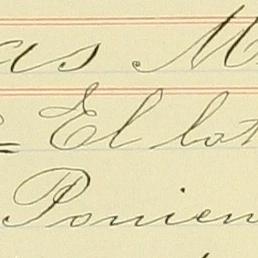 as M
= El lot
Ponien